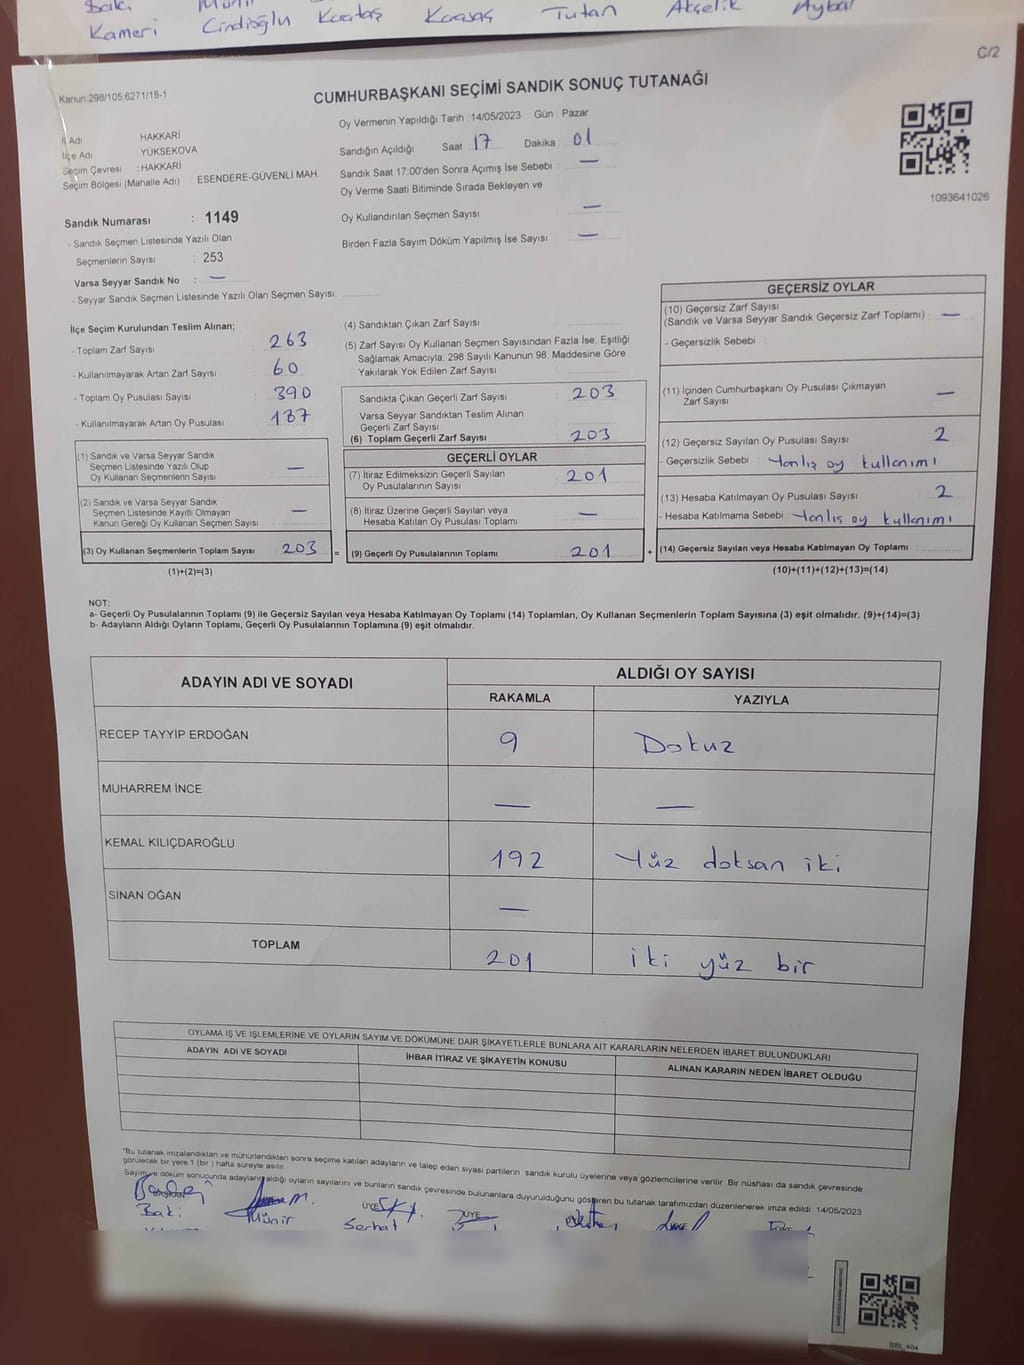 Kameri Cindioğlu Karataş Karasaş Tutan Akçelik Aybar
C/2
Kanun:298/105;6271/18-1
CUMHURBAŞKANI SEÇİMİ SANDIK SONUÇ TUTANAĞI
Oy Vermenin Yapıldığı Tarih : 14/05/2023 Gün : Pazar
İl Adı HAKKARİ
İlçe Adı YÜKSEKOVA
Seçim Çevresi : HAKKARİ
Seçim Bölgesi (Mahalle Adı) ESENDERE-GÜVENLİ MAH.
Sandığın Açıldığı Saat 17 Dakika 01
Sandık Saat 17.00'den Sonra Açımış İse Sebebi : —
Oy Verme Saati Bitiminde Sırada Bekleyen ve
Oy Kullandırılan Seçmen Sayısı —
Birden Fazla Sayım Döküm Yapılmış İse Sayısı : —
1093641026
Sandık Numarası : 1149
- Sandık Seçmen Listesinde Yazılı Olan
Seçmenlerin Sayısı : 253
Varsa Seyyar Sandık No : —
- Seyyar Sandık Seçmen Listesinde Yazılı Olan Seçmen Sayısı
İlçe Seçim Kurulundan Teslim Alınan;
- Toplam Zarf Sayısı 263
- Kullanılmayarak Artan Zarf Sayısı 60
- Toplam Oy Pusulası Sayısı 390
- Kullanılmayarak Artan Oy Pusulası 187
(1) Sandık ve Varsa Seyyar Sandık
Seçmen Listesinde Yazılı Olup
Oy Kullanan Seçmenlerin Sayısı —
(2) Sandık ve Varsa Seyyar Sandık
Seçmen Listesinde Kayıtlı Olmayan
Kanun Gereği Oy Kullanan Seçmen Sayısı —
(3) Oy Kullanan Seçmenlerin Toplam Sayısı 203 =
(1)+(2)=(3)
(4) Sandıktan Çıkan Zarf Sayısı
(5) Zarf Sayısı Oy Kullanan Seçmen Sayısından Fazla İse, Eşitliği
Sağlamak Amacıyla; 298 Sayılı Kanunun 98. Maddesine Göre
Yakılarak Yok Edilen Zarf Sayısı
Sandıkta Çıkan Geçerli Zarf Sayısı : 203
Varsa Seyyar Sandıktan Teslim Alınan
Geçerli Zarf Sayısı
(6) Toplam Geçerli Zarf Sayısı : 203
GEÇERLİ OYLAR
(7) İtiraz Edilmeksizin Geçerli Sayılan
Oy Pusulalarının Sayısı : 201
(8) İtiraz Üzerine Geçerli Sayılan veya
Hesaba Katılan Oy Pusulası Toplamı : —
(9) Geçerli Oy Pusulalarının Toplamı : 201 +
GEÇERSİZ OYLAR
(10) Geçersiz Zarf Sayısı
(Sandık ve Varsa Seyyar Sandık Geçersiz Zarf Toplamı) : —
- Geçersizlik Sebebi :
(11) İçinden Cumhurbaşkanı Oy Pusulası Çıkmayan
Zarf Sayısı —
(12) Geçersiz Sayılan Oy Pusulası Sayısı 2
- Geçersizlik Sebebi : Yanlış oy kullanımı
(13) Hesaba Katılmayan Oy Pusulası Sayısı 2
- Hesaba Katılmama Sebebi : Yanlış oy kullanımı
(14) Geçersiz Sayılan veya Hesaba Katılmayan Oy Toplamı :
(10)+(11)+(12)+(13)=(14)
NOT:
a- Geçerli Oy Pusulalarının Toplamı (9) ile Geçersiz Sayılan veya Hesaba Katılmayan Oy Toplamı (14) Toplamları, Oy Kullanan Seçmenlerin Toplam Sayısına (3) eşit olmalıdır. (9)+(14)=(3)
b- Adayların Aldığı Oyların Toplamı, Geçerli Oy Pusulalarının Toplamına (9) eşit olmalıdır.
ADAYIN ADI VE SOYADI ALDIĞI OY SAYISI
RAKAMLA YAZIYLA
RECEP TAYYİP ERDOĞAN 9 Dokuz
MUHARREM İNCE — —
KEMAL KILIÇDAROĞLU 192 Yüz doksan iki
SİNAN OĞAN —
TOPLAM 201 iki yüz bir
OYLAMA İŞ VE İŞLEMLERİNE VE OYLARIN SAYIM VE DÖKÜMÜNE DAİR ŞİKAYETLERLE BUNLARA AİT KARARLARIN NELERDEN İBARET BULUNDUKLARI
ADAYIN ADI VE SOYADI İHBAR İTİRAZ VE ŞİKAYETİN KONUSU ALINAN KARARIN NEDEN İBARET OLDUĞU
*Bu tutanak imzalandıktan ve mühürlendikten sonra seçime katılan adayların ve talep eden siyasi partilerin sandık kurulu üyelerine veya gözlemcilerine verilir. Bir nüshası da sandık çevresinde
görülecek bir yere 1 (bir) hafta süreyle asılır.
Sayım ve döküm sonucunda adayların aldığı oyların sayılarını ve bunların sandık çevresinde bulunanlara duyurulduğunu gösteren bu tutanak tarafımızdan düzenlenerek imza edildi. 14/05/2023
BAŞKAN ÜYE ÜYE
Baki Münir Serhat